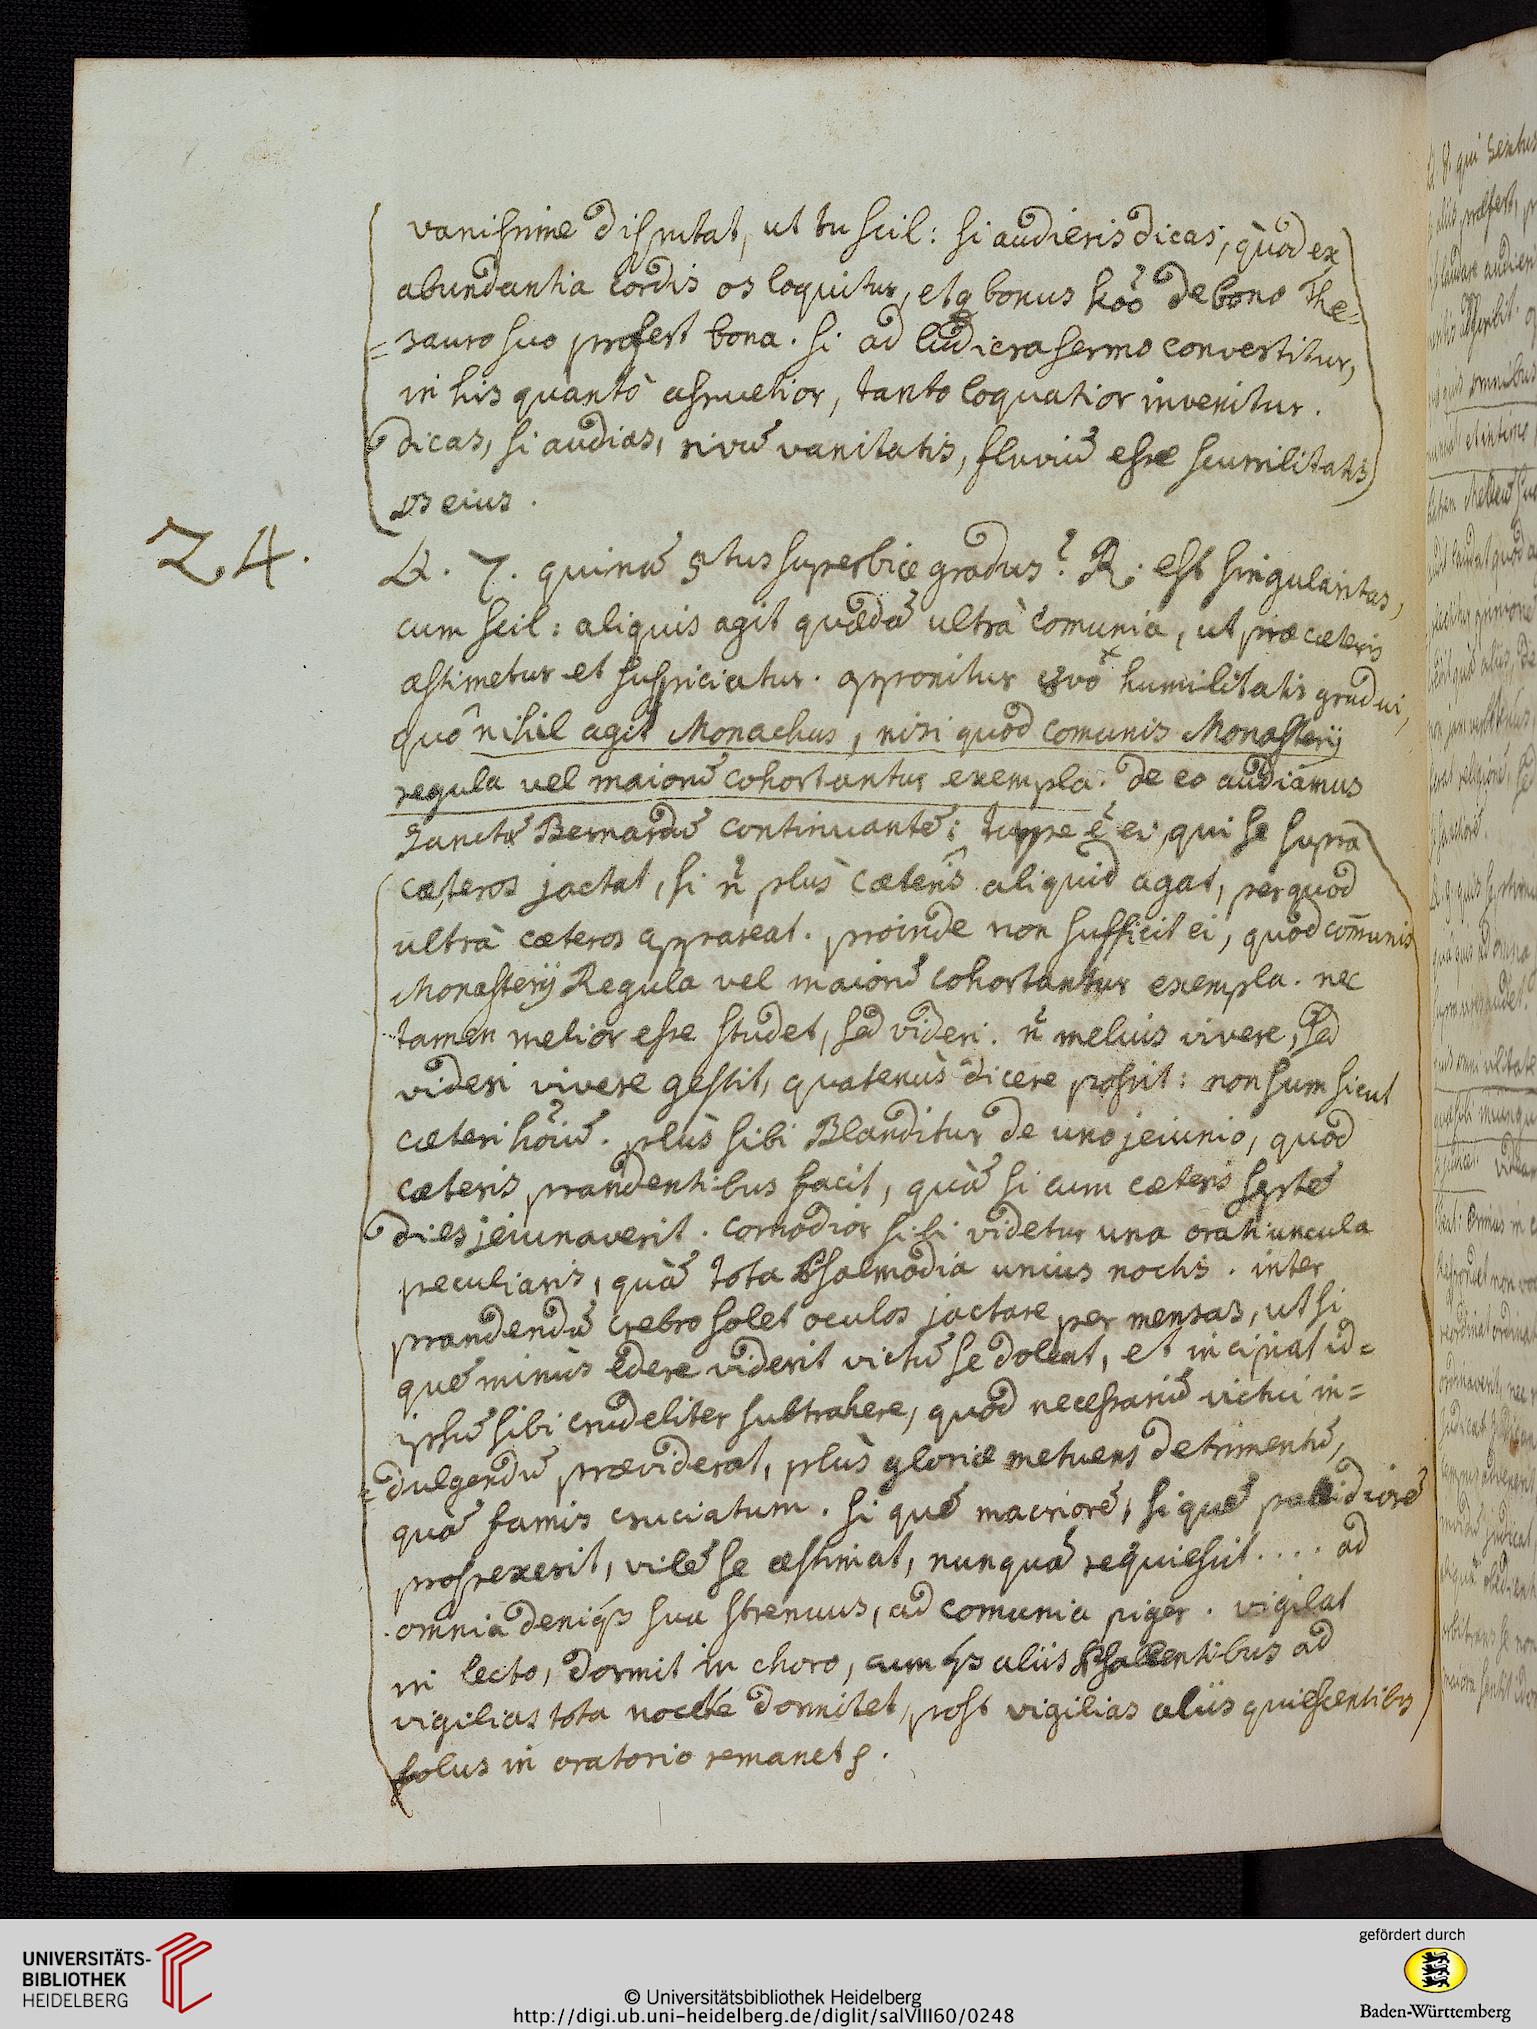 vanissime disputat, ut tu scil: si audieris dicas, quòd ex
abundantia cordis os loquitur, et q bonus hoō de bono The=
=sauro suo profert bona. si ad ludicra sermo convertitur,
in his quantò assuetior, tanto loquatior invenitur.
dicas, si audias, rivū vanitatis, fluviū esse scurrilitatis
os eius.
24.
Q. 7. quinā 5tus superbiæ gradus? R: est singularitas,
cum scil: aliquis agit quædā ultrà comunia, ut præ cæteris
æstimetur et suspiciatur. opponitur 8vo humilitatis gradui,
quô nihil agit Monachus, nisi quod comunis Monasterij
regula vel maiorū cohortantur exempla. de eo audiamus
Sanctū Bernardū continuantē: turpe ē ei, qui se supra
cæteros jactat, si ñ plùs cæteris aliquid agat, per quod
ultrà cæteros appareat. proinde non sufficit ei, quod com̄unis
Monasterij Regula vel maiorū cohortantur exempla. nec
tamen melior esse studet, sed videri. ñ melius vivere, sed
videri vivere gestit, quatenùs dicere possit: non sum sicut
cæteri hōiū. plùs sibi Blanditur de uno jeiunio, quod
cæteris prandentibus facit, quā si cum cæteris septē
dies jeiunaverit. comodior sibi videtur una oratiuncula
peculiaris, quā tota Psalmodia unius noctis. inter
prandendū crebro solet oculos jactare per mensas, ut si
quē minùs edere viderit victū se doleat, et incipiat id=
ipsū sibi crudeliter subtrahere, quod necessariū victui in=
=dulgendū præviderat, plùs gloriæ metuens detrimentū,
quā famis cruciatum. si quē macriorē, si quē pallidiorē
prospexerit, vilē se æstimat, nunquā requiescit.... ad
omnia denique sua strenuus, ad comunia piger. vigilat
in lecto, dormit in choro, cumque aliis Psallentibus ad
vigilias tota nocte dormitet, post vigilias aliis quiescentibus
solus in oratorio remanet
UNIVERSITÄTS-
BIBLIOTHEK
HEIDELBERG
© Universitätsbibliothek Heidelberg
http://digi.ub.uni-heidelberg.de/diglit/salVIII60/0248
gefördert durch
Baden-Württemberg